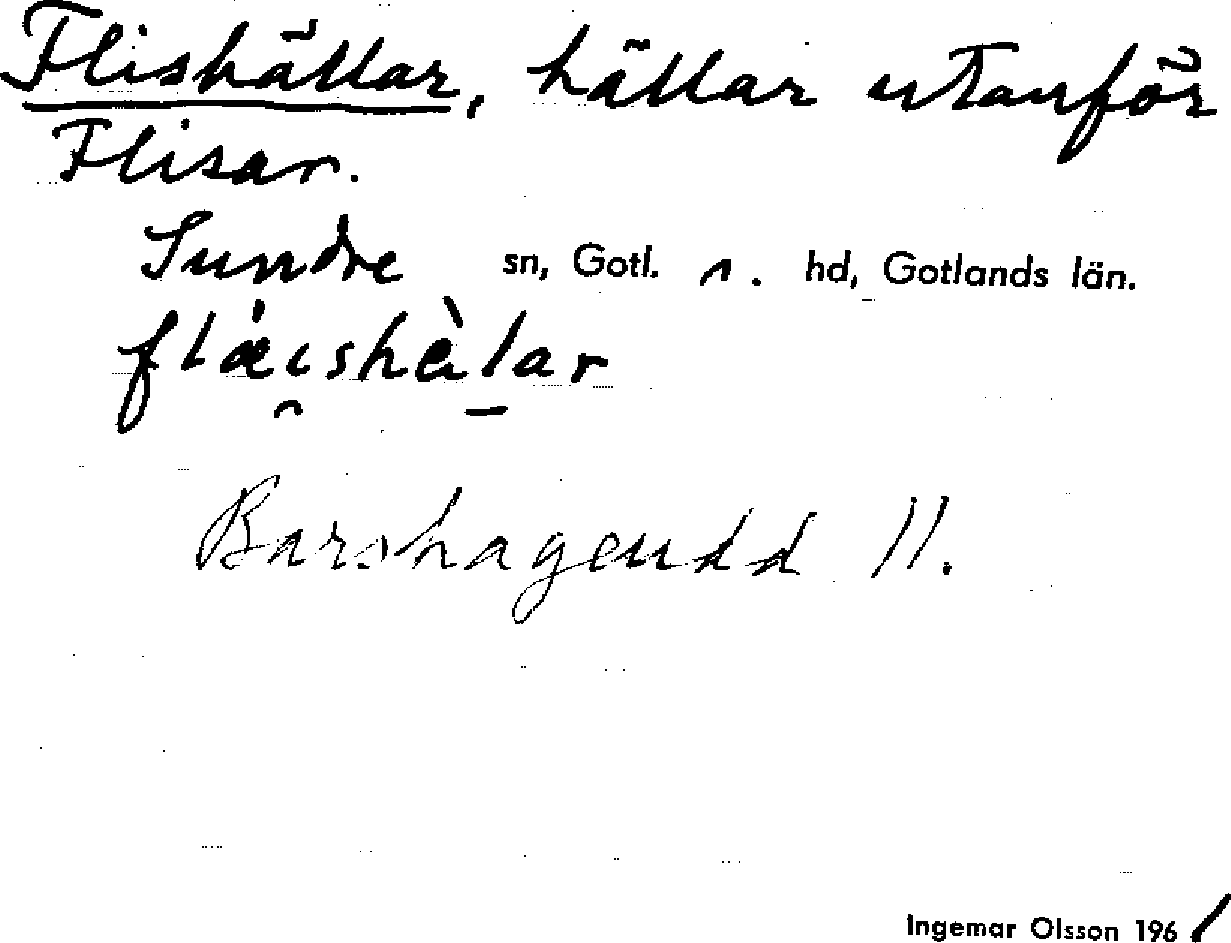 Flishällar, hällar utanför
Flisar.
Sundre sn, Gotl. s. hd, Gotlands län.
flæ̀i̯shèl̲ar
Barshageudd II.
Ingemar Olsson 1961